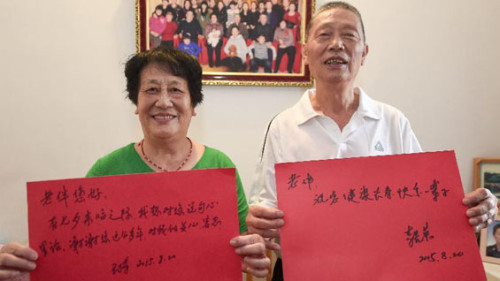 老伴您好:
在七夕来临之际,我想对您说句心
里话,谢谢您这么多年,对我的关心
2015.8.20
老伴
祝你健康长寿快乐一辈子
2015.8.20